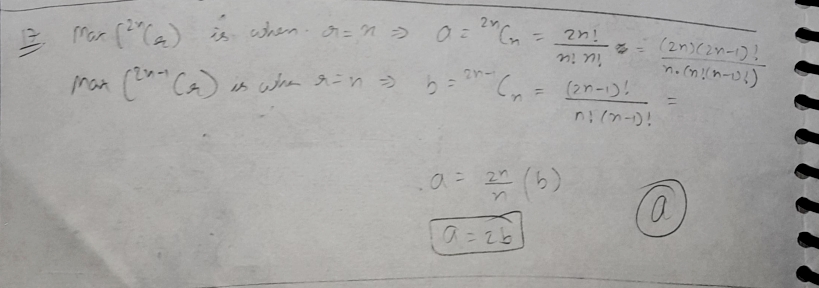 17 Max (²ⁿCr) is when r = n ⇒ a = ²ⁿCn = 2n! / n! n! = (2n)(2n-1)! / n.(n!(n-1)!)
Max (²ⁿ⁻¹Cr) is when r = n ⇒ b = ²ⁿ⁻¹Cn = (2n-1)! / n! (n-1)! =
a = 2n/n (b)
a = 2b
a